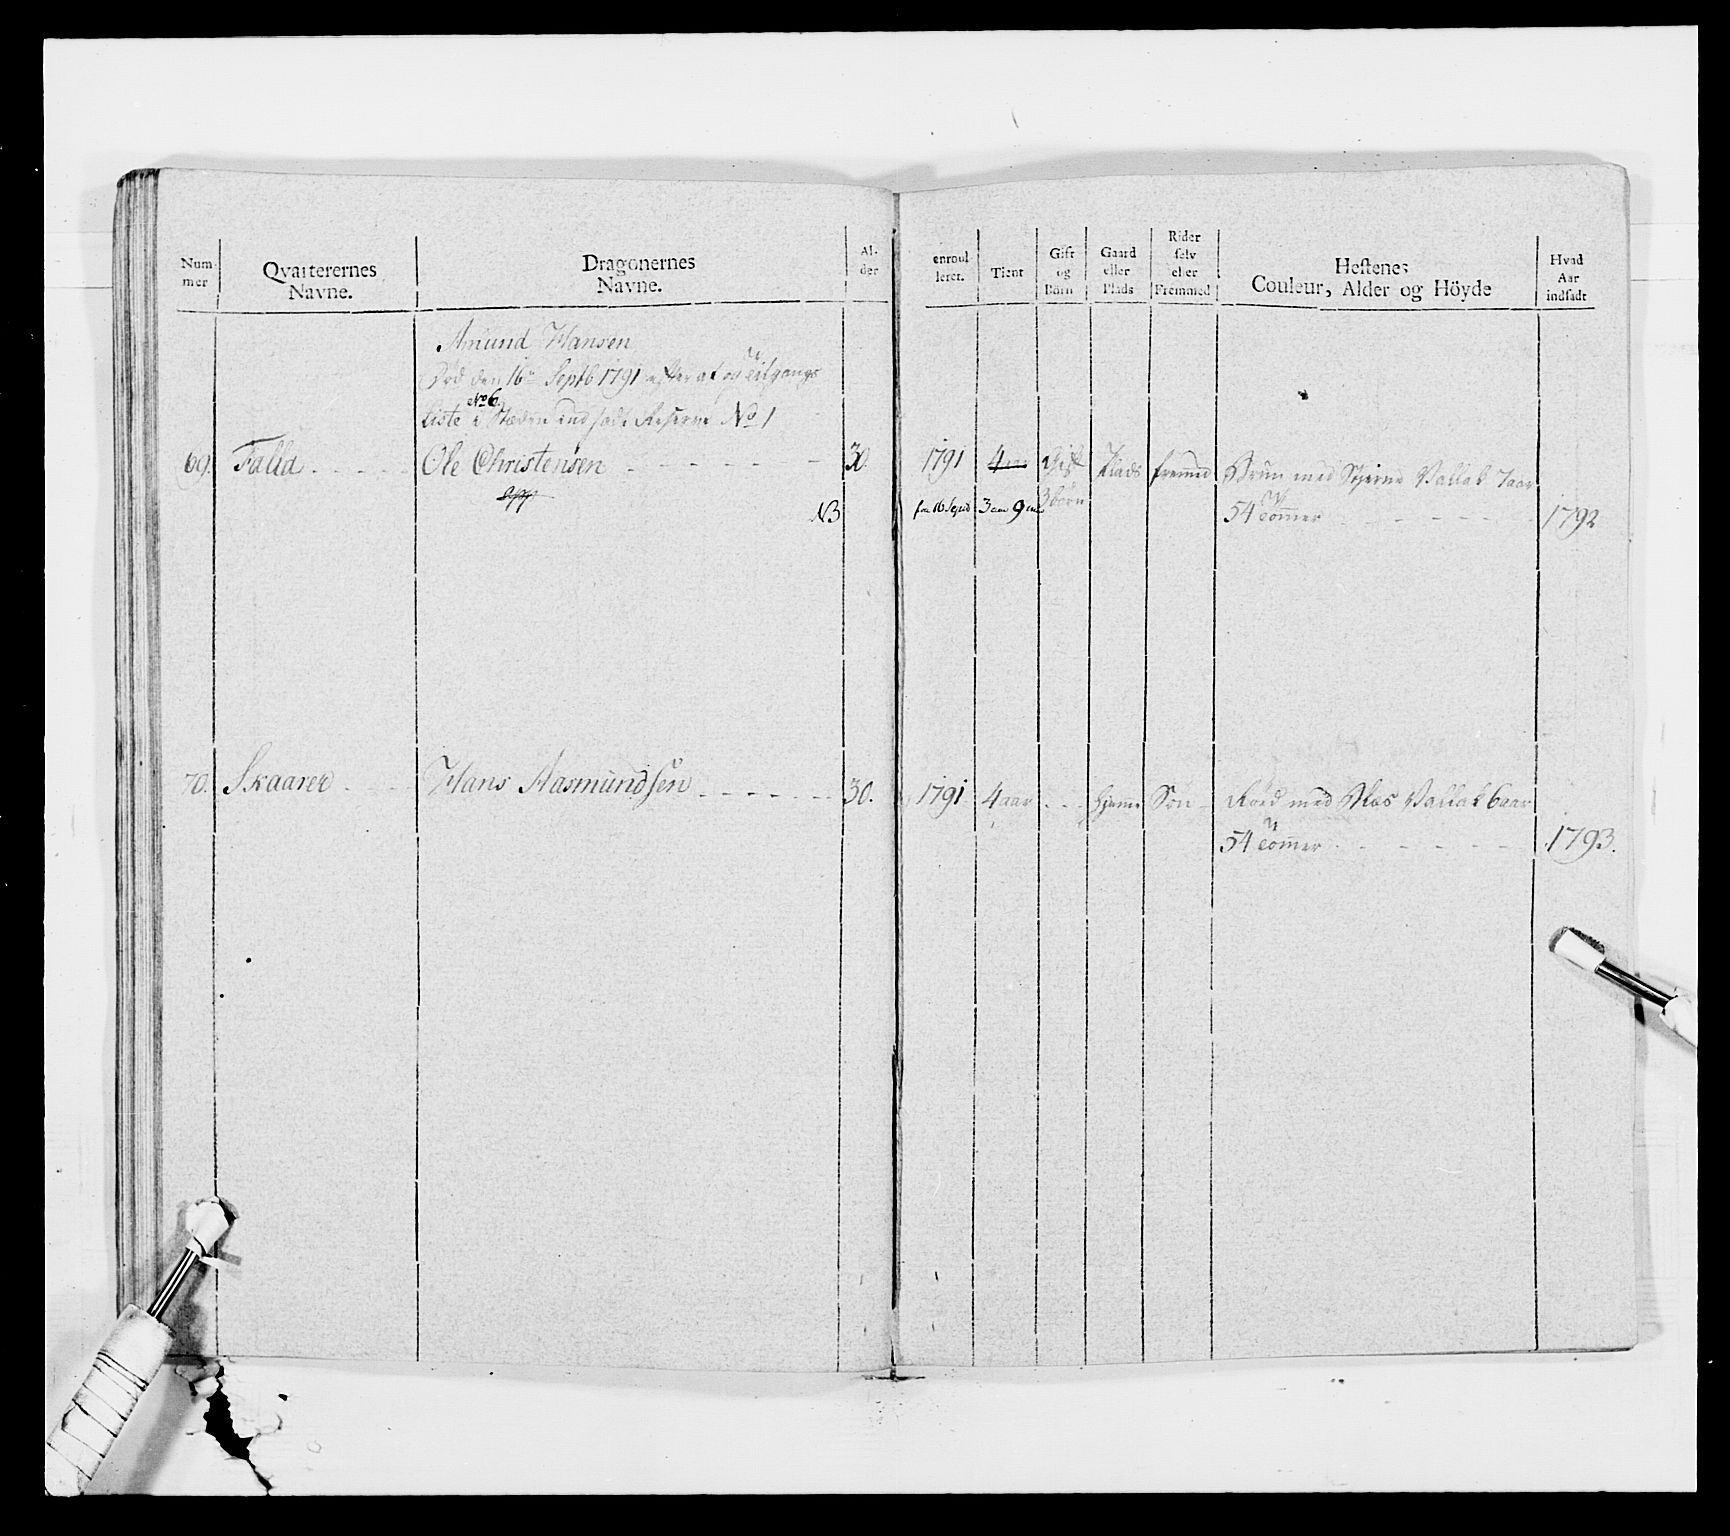 Num-
mer
Qvarterernes
Navne.
Dragonernes
Navne.
Al-
der
enroul
leret.
Tient
Gift
og
Börn
Gaard
eller
Plads
Rider
selv
eller
Fremmed
Hestenes
Couleur, Alder og Höyde
Hvad
Aar
indsadt
Amund Hansen
Död den 16de Septb 1791 efter af og tilgangs
Liste No 6. i Stæden indsadt Reserve No 1
69. Falld Ole Christensen 30. 1791 4 aar Gift Plads fremed Brun med Stierne Vallak 7aar
app
NB fra 16 Septb 3 aar 9 3 börn 54 Tommer 1792
70. Skaarer Hans Aasmundsen 30. 1791 4 aar hjeme Sön Röd med Blas Vallak 6aar
54 Tommer 1793.